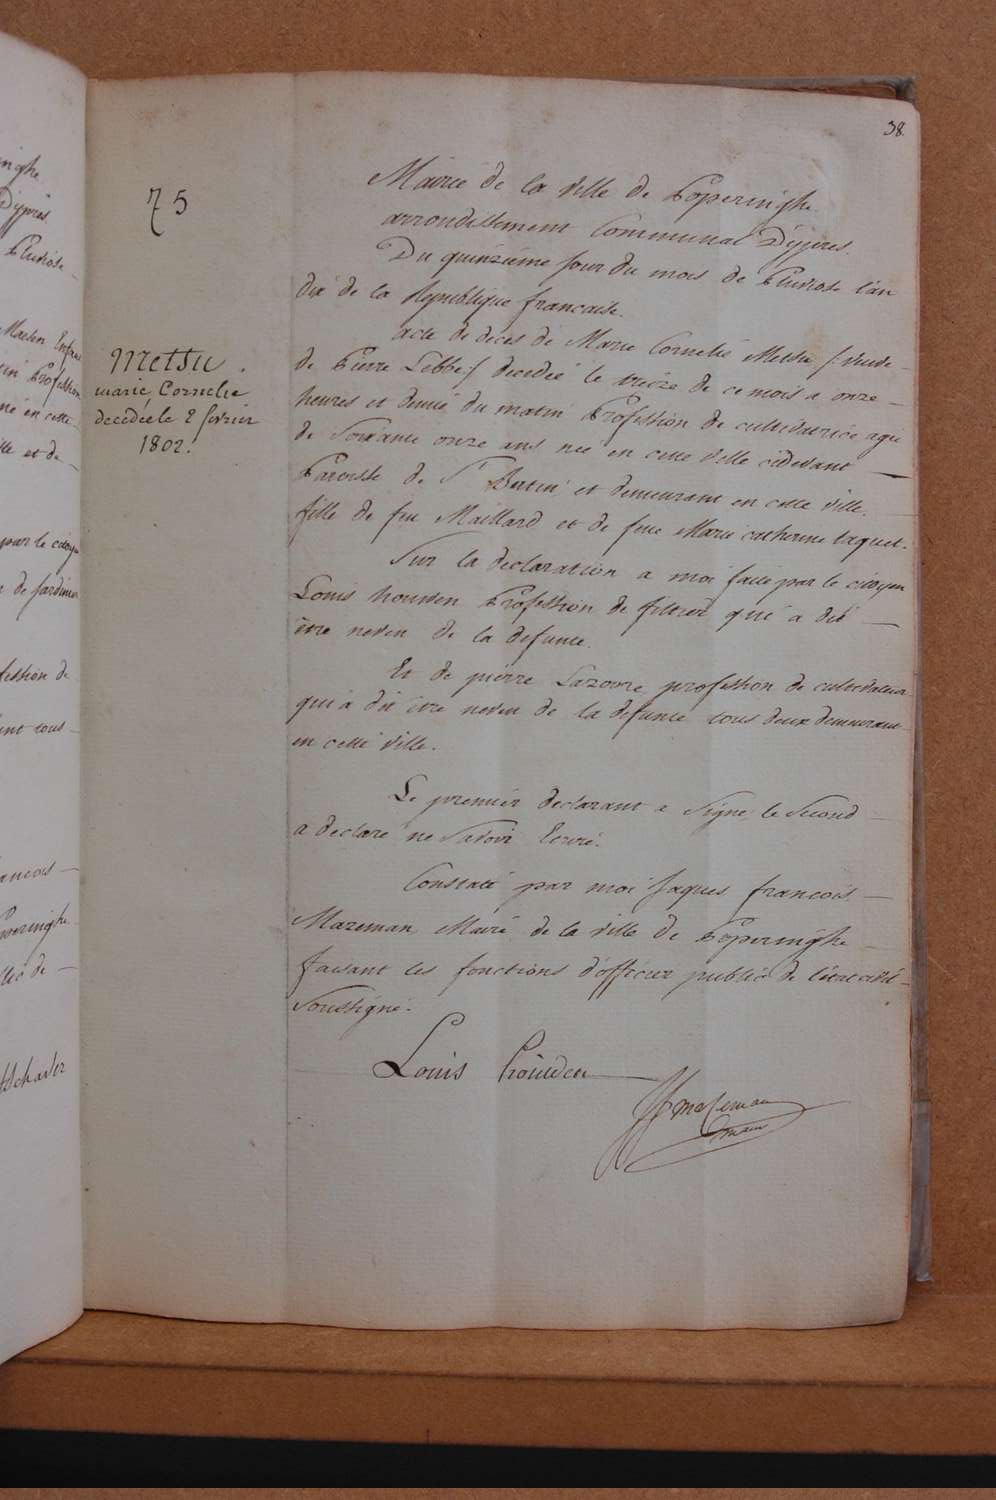 38.
75
Mairie de la ville de Poperinghe
arrondissement Communal D'ypres.
Du quinzieme jour du mois de Pluviose l'an
dix de la Republique francaise.
acte de deces de Marie Cornelie Metsu /: veuve
de Pierre Lebbe :/ decedée le treize de ce mois a onze
heures et demie du matin Profession de cultivatrice agée
de Soixante onze ans née en cette ville cidevant
Paroisse de St Bertin et demeurant en cette ville.
fille de feu Maillard et de feue Marie catherine taquet.
Sur la declaration a moi faite par le citoyen
Louis houwen Profession de qui a dit
être neveu de la defunte.
Et de pierre Lazoore profession de cultivateur
qui a dit être neveu de la defunte tous deux demeurant
en cette ville.
Le premier declarant a Signé le Second
a declaré ne Savoir Ecrire.
Constaté par moi Jaques francois
Mazeman Maire de la ville de Poperinghe
faisant les fonctions d'officier public de l'état civil
Soussigné.
Louis houwen
JFMazeman
maire
Metsu.
marie, Cornelie
decedée le 2 fevrier
1802.